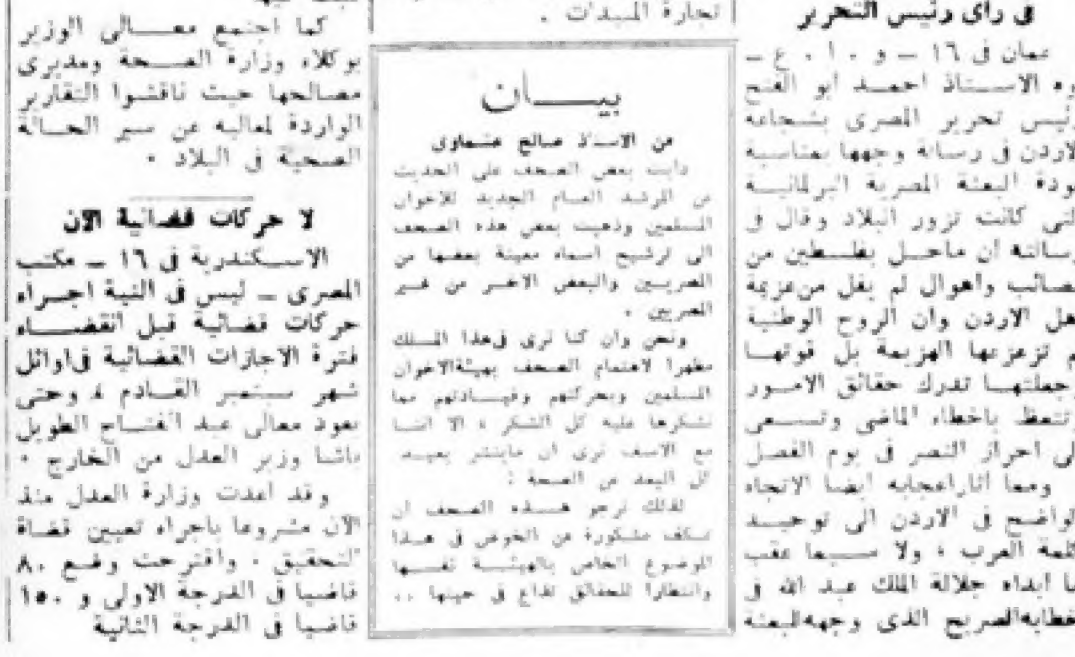 فى رأى رئيس التحرير
عمان فى ١٦ – و . ا . ع –
وه الاستاذ احمد ابو الفتح
رئيس تحرير المصرى بشجاعة
الاردن فى رسالة وجهها بمناسبة
عودة البعثة المصرية البرلمانية
التى كانت تزور البلاد وقال فى
رسالته ان ماحل بفلسطين من
مصائب واهوال لم يفل من عزيمة
اهل الاردن وان الروح الوطنية
لم تزعزعها الهزيمة بل قوتها
وجعلتها تدرك حقائق الامور
وتتعظ باخطاء الماضى وتسعى
الى احراز النصر فى يوم الفصل
ومما أثار اعجابه ايضا الاتجاه
الواضح فى الاردن الى توحيد
كلمة العرب ، ولا سيما عقب
ما ابداه جلالة الملك عبد الله فى
خطابه الصريح الذى وجهه للبعثة
تجارة المبدات .
بيـــان
من الاستاذ صالح عشماوى
دأبت بعض الصحف على الحديث
عن المرشد العام الجديد للاخوان
المسلمين وذهبت بعض هذه الصحف
الى ترشيح اسماء معينة بعضها من
المصريين والبعض الاخر من غير
المصريين .
ونحن وان كنا نرى فى هذا المسلك
مظهرا لاهتمام الصحف بهيئة الاخوان
المسلمين وبحركتهم وقيادتهم مما
نشكرها عليه كل الشكر ، الا اننا
مع الاسف نرى ان ماينشر بعيد
كل البعد عن الصحة :
لذلك نرجو هذه الصحف ان
تكف مشكورة عن الخوض فى هذا
الموضوع الخاص بالهيئة نفسها
وانتظارا للحقائق تذاع فى حينها ..
كما اجتمع معالى الوزير
بوكلاء وزارة الصحة ومديرى
مصالحها حيث ناقشوا التقارير
الواردة لمعاليه عن سير الحالة
الصحية فى البلاد .
لا حركات قضائية الآن
الاسكندرية فى ١٦ – مكتب
المصرى – ليس فى النية اجراء
حركات قضائية قبل انقضاء
فترة الاجازات القضائية فى اوائل
شهر سبتمبر القادم ، وحتى
يعود معالى عبد الفتاح الطويل
باشا وزير العدل من الخارج .
وقد اعدت وزارة العدل منذ
الآن مشروعا باجراء تعيين قضاة
التحقيق . واقترحت وضع ٨٠
قاضيا فى الدرجة الاولى و ١٥٠
قاضيا فى الدرجة الثانية